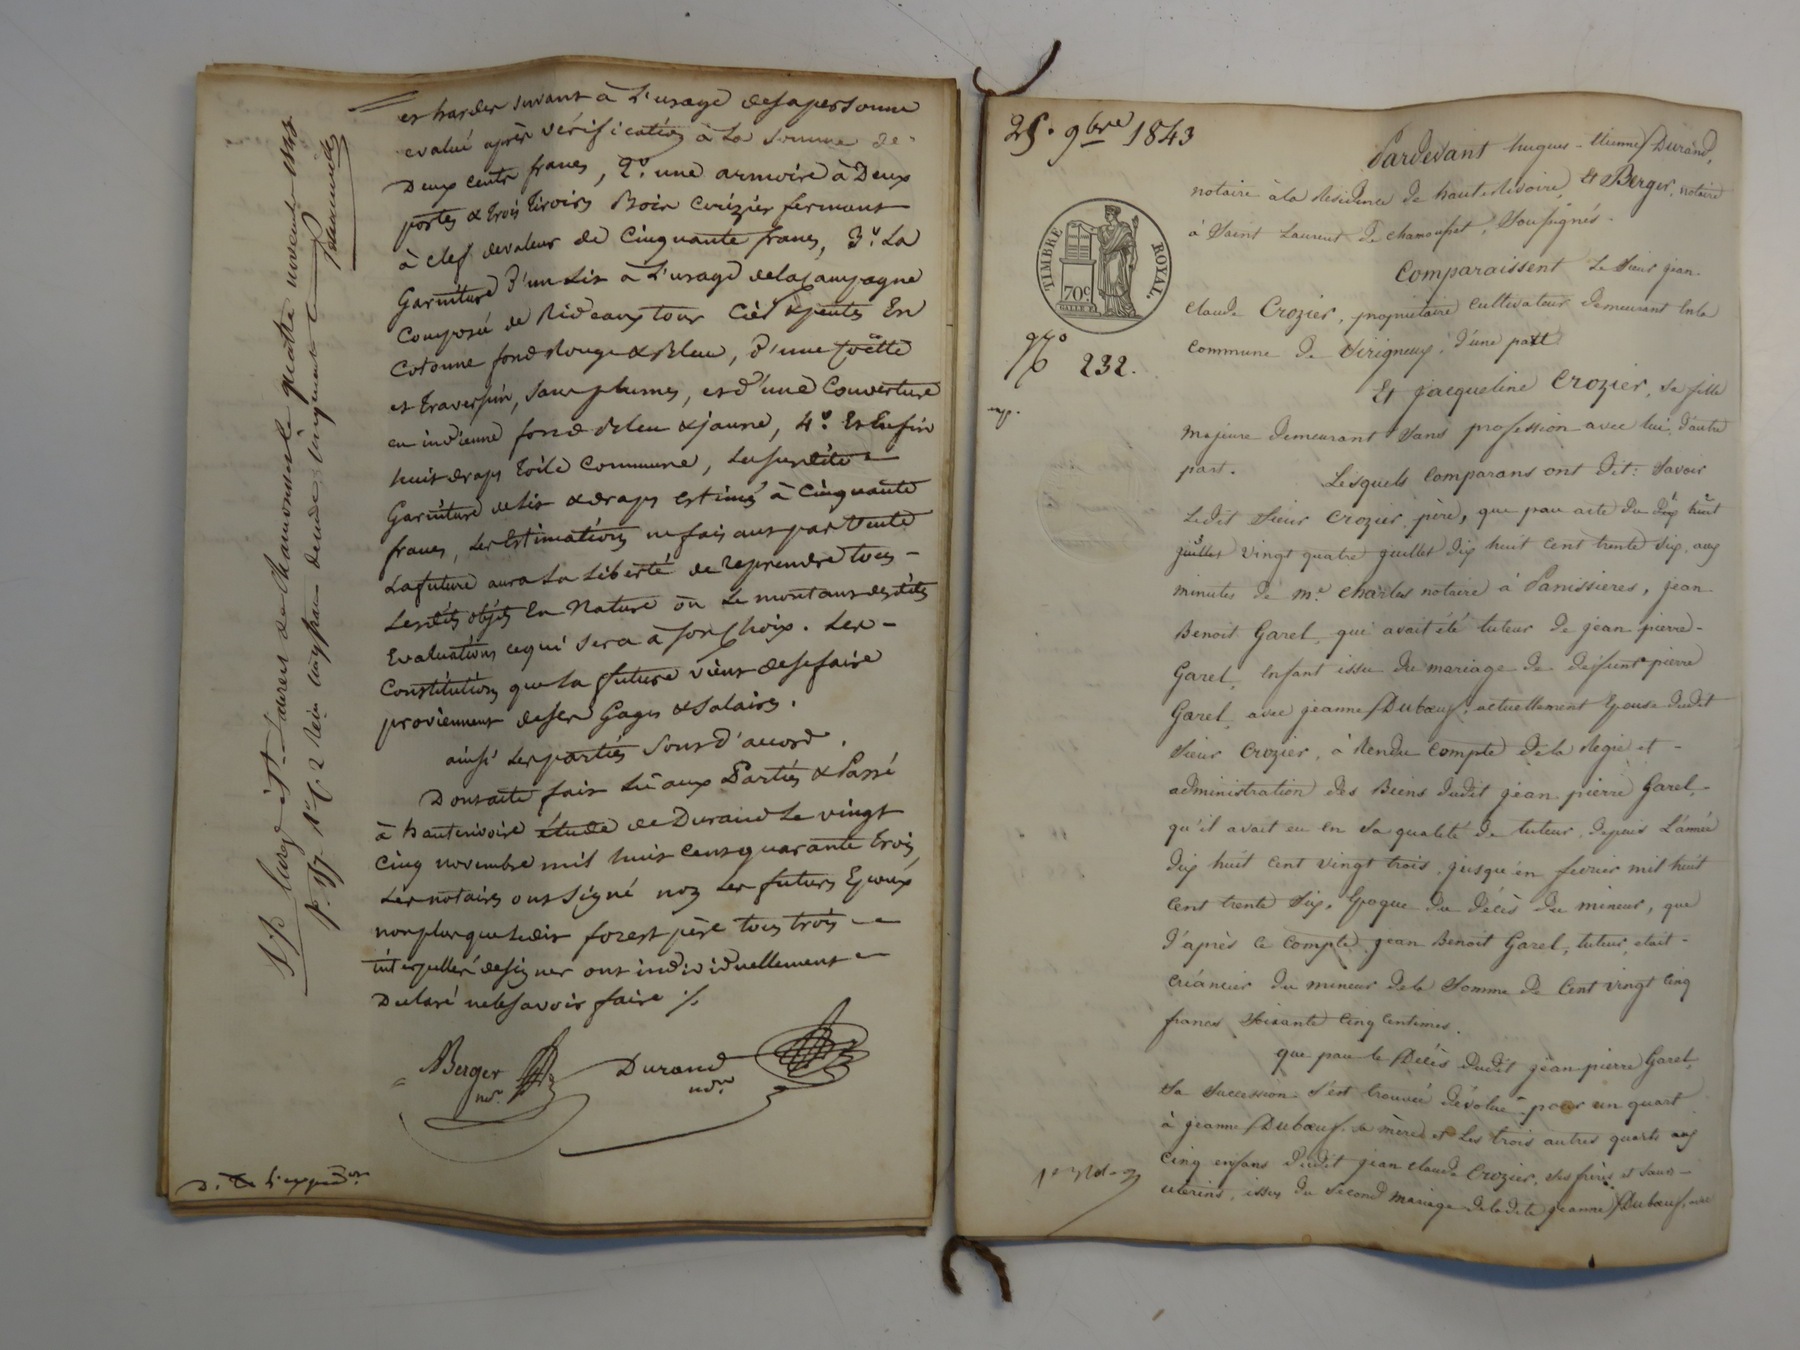 et hardes servant à L'usage desapersonne
evalué après vérification à La somme de
Deux cents francs, 2.° une armoire à Deux
portes & trois tiroirs Bois cerizier fermant
à clef devaleur de Cinquante francs, 3.° La
Garniture d'un Lit à L'usage delaCampagne
Composé de Rideaux tour Ciel & pentes En
Cotonne fond Rouge & Bleu, d'une
et traversin, sans plumes, et d'une Couverture
en indienne fond Bleu & jaune, 4.° Et Enfin
huit draps toile Commune, Lesusdite
Garniture de Lit & draps estimés à Cinquante
francs, Les Estimations ne fais ant pas Vente
Lafuture aura La Liberté de reprendre tous
Lesdits objets En Nature ou Le montant desdites
Evaluations cequi sera à son Choix. Les
Constitutions que La future vient desefaire
proviennent deses Gages & Salaires.
ainsi Les parties sont d'accord.
Dont acte fait Lu aux Parties & Passé
à hauterivoire étude de Durand Le vingt
Cinq novembre mil huit Cent quarante trois,
Les notaires ont signé non Les futurs Epoux
nonplus que Ledit forest père tous trois
interpellés designer ont individuellement
Declaré ne le savoir faire ./.
Berger
no.re
Durand
no.re
St Laurent de Chamousset le quatre novembre 1843
25. 9bre 1843
TIMBRE ROYAL.
70c
N° 232.
Pardevant hugues-Etienne Durand,
notaire à la Résidence de hauteRivoire, & Berger, notaire
à Saint Laurent de chamousset, Soussignés.
Comparaissent Le Sieur jean
claude Crozier, propriétaire cultivateur demeurant En la
commune de Virigneux, d'une part
Et jacqueline Crozier, sa fille
majeure demeurant sans profession avec lui, d'autre
part. Lesquels Comparans ont dit: Savoir
Ledit Sieur Crozier père, que par acte du dix huit
juillet vingt quatre juillet dix huit cent trente six, aux
minutes de m.e Charles notaire à Panissieres, jean
Benoit Garel, qui avait été tuteur de jean pierre
Garel, Enfant issu du mariage de defunt pierre
Garel, avec jeanne Dubœuf, actuellement Epouse dudit
Sieur Crozier, à Rendu compte de la Regie et
administration des Biens dudit jean pierre Garel,
qu'il avait eu en sa qualité de tuteur, depuis L'année
dix huit cent vingt trois, jusqu'en fevrier mil huit
cent trente six, Epoque du décès du mineur, que
d'après ce compte, jean Benoit Garel, tuteur, etait
créancier du mineur de la Somme de Cent vingt cinq
francs soixante cinq centimes.
que par le Décès dudit jean pierre Garel,
sa succession s'est trouvée dévolue pour un quart
à jeanne Dubœuf, sa mère et Les trois autres quarts aux
cinq enfans dudit jean claude Crozier, ses frères et sœurs
uterins, issus du second mariage de ladite jeanne Dubœuf, avec